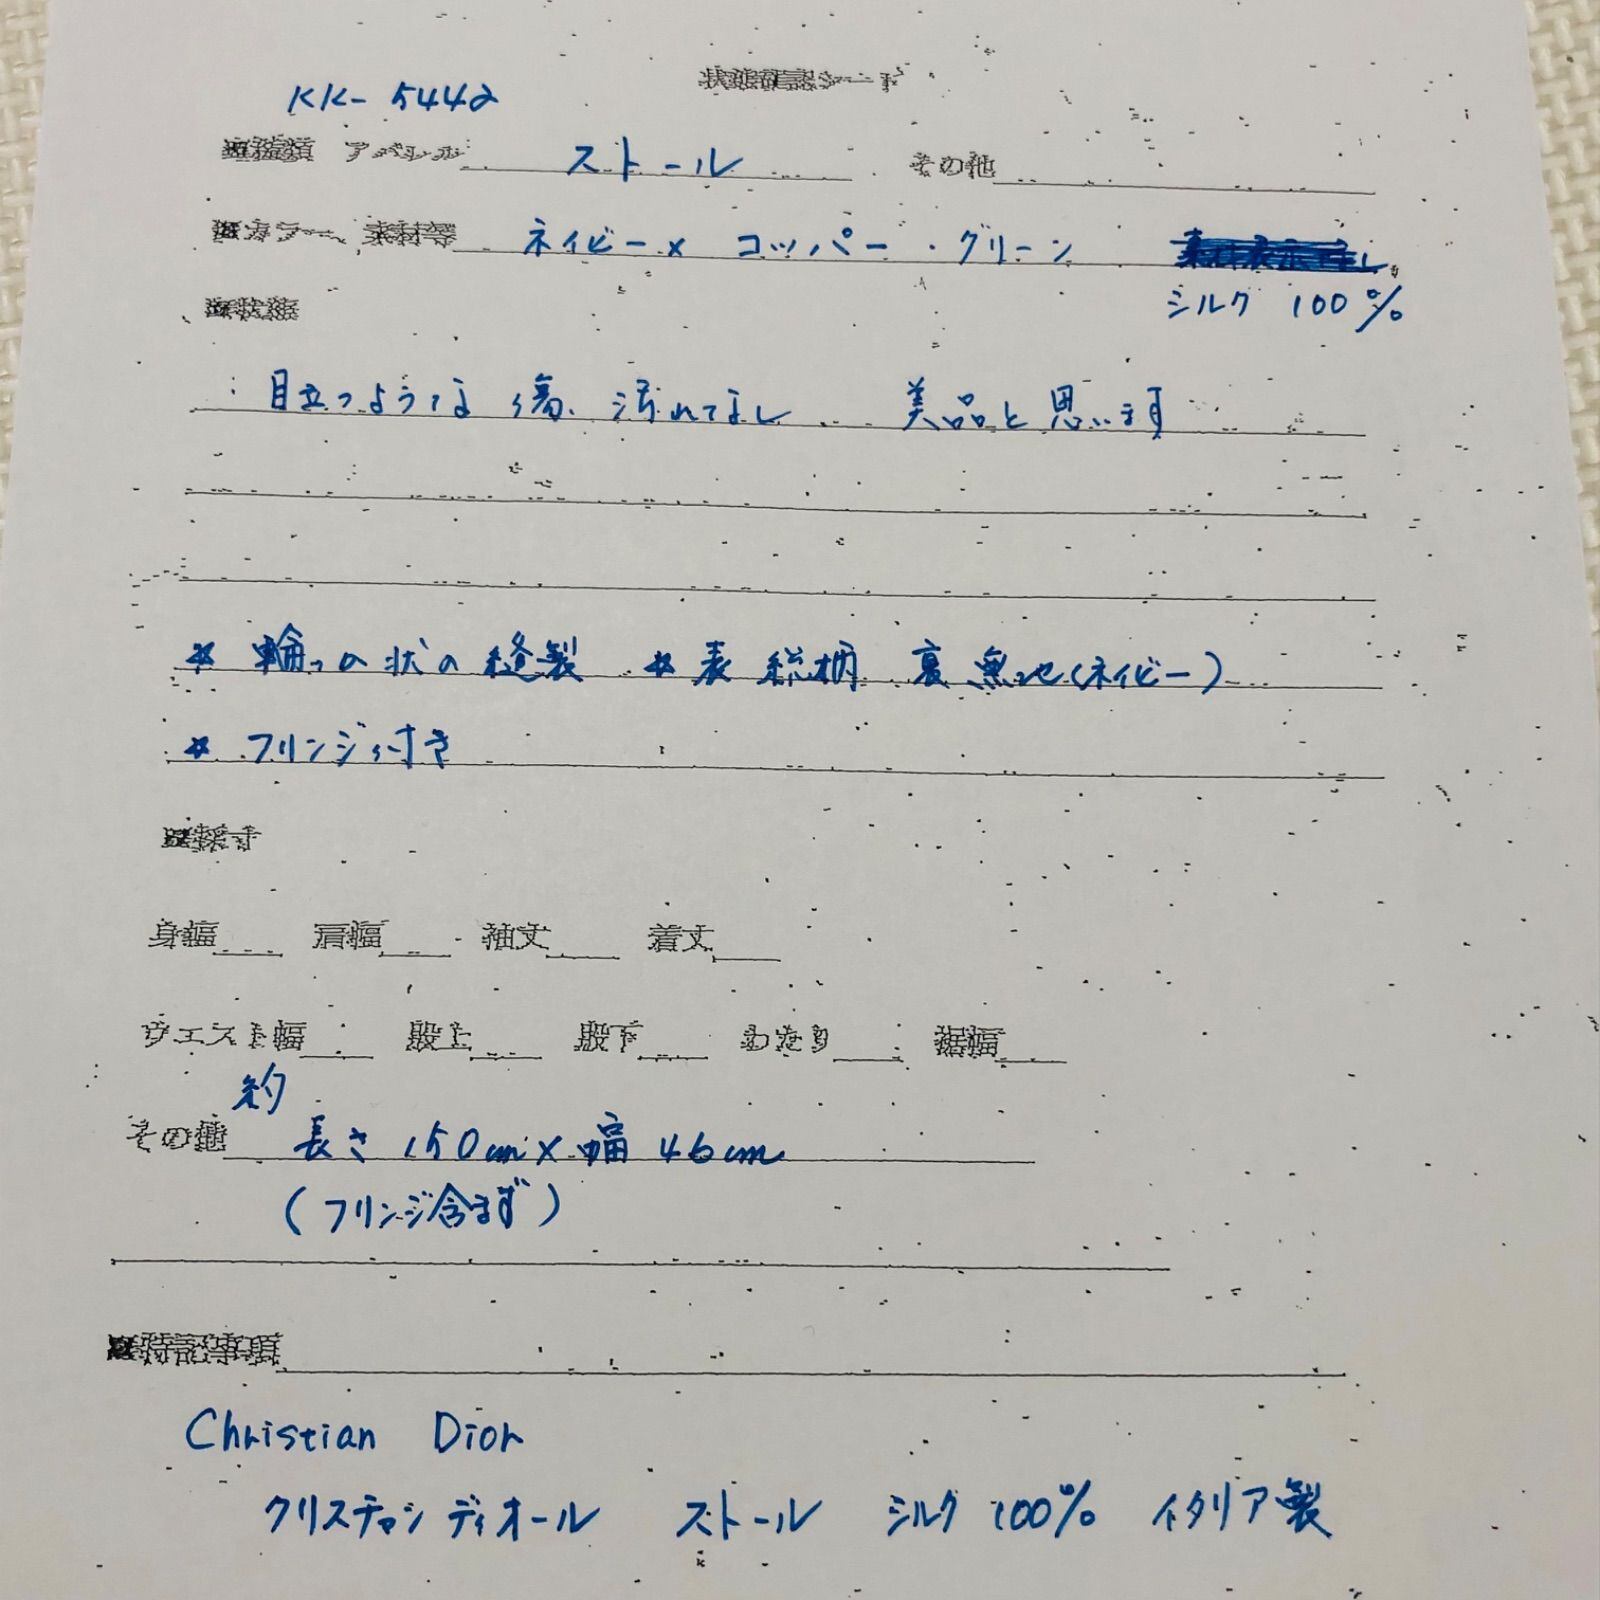 状態確認シート
KK-5442
■種類 アパレル ストール その他
■カラー、素材等 ネイビー×コッパー・グリーン
シルク 100%
■状態
目立つような傷、汚れてなし 美品と思います
* 輪っの状の縫製 * 表 総柄 裏 無地(ネイビー)
* フリンジ付き
■採寸
身幅 肩幅 袖丈 着丈
ウエスト幅 股上 股下 わたり 裾幅
約
その他 長さ150cm×幅46cm
(フリンジ含まず)
■特記事項
Christian Dior
クリスチャンディオール ストール シルク100% イタリア製